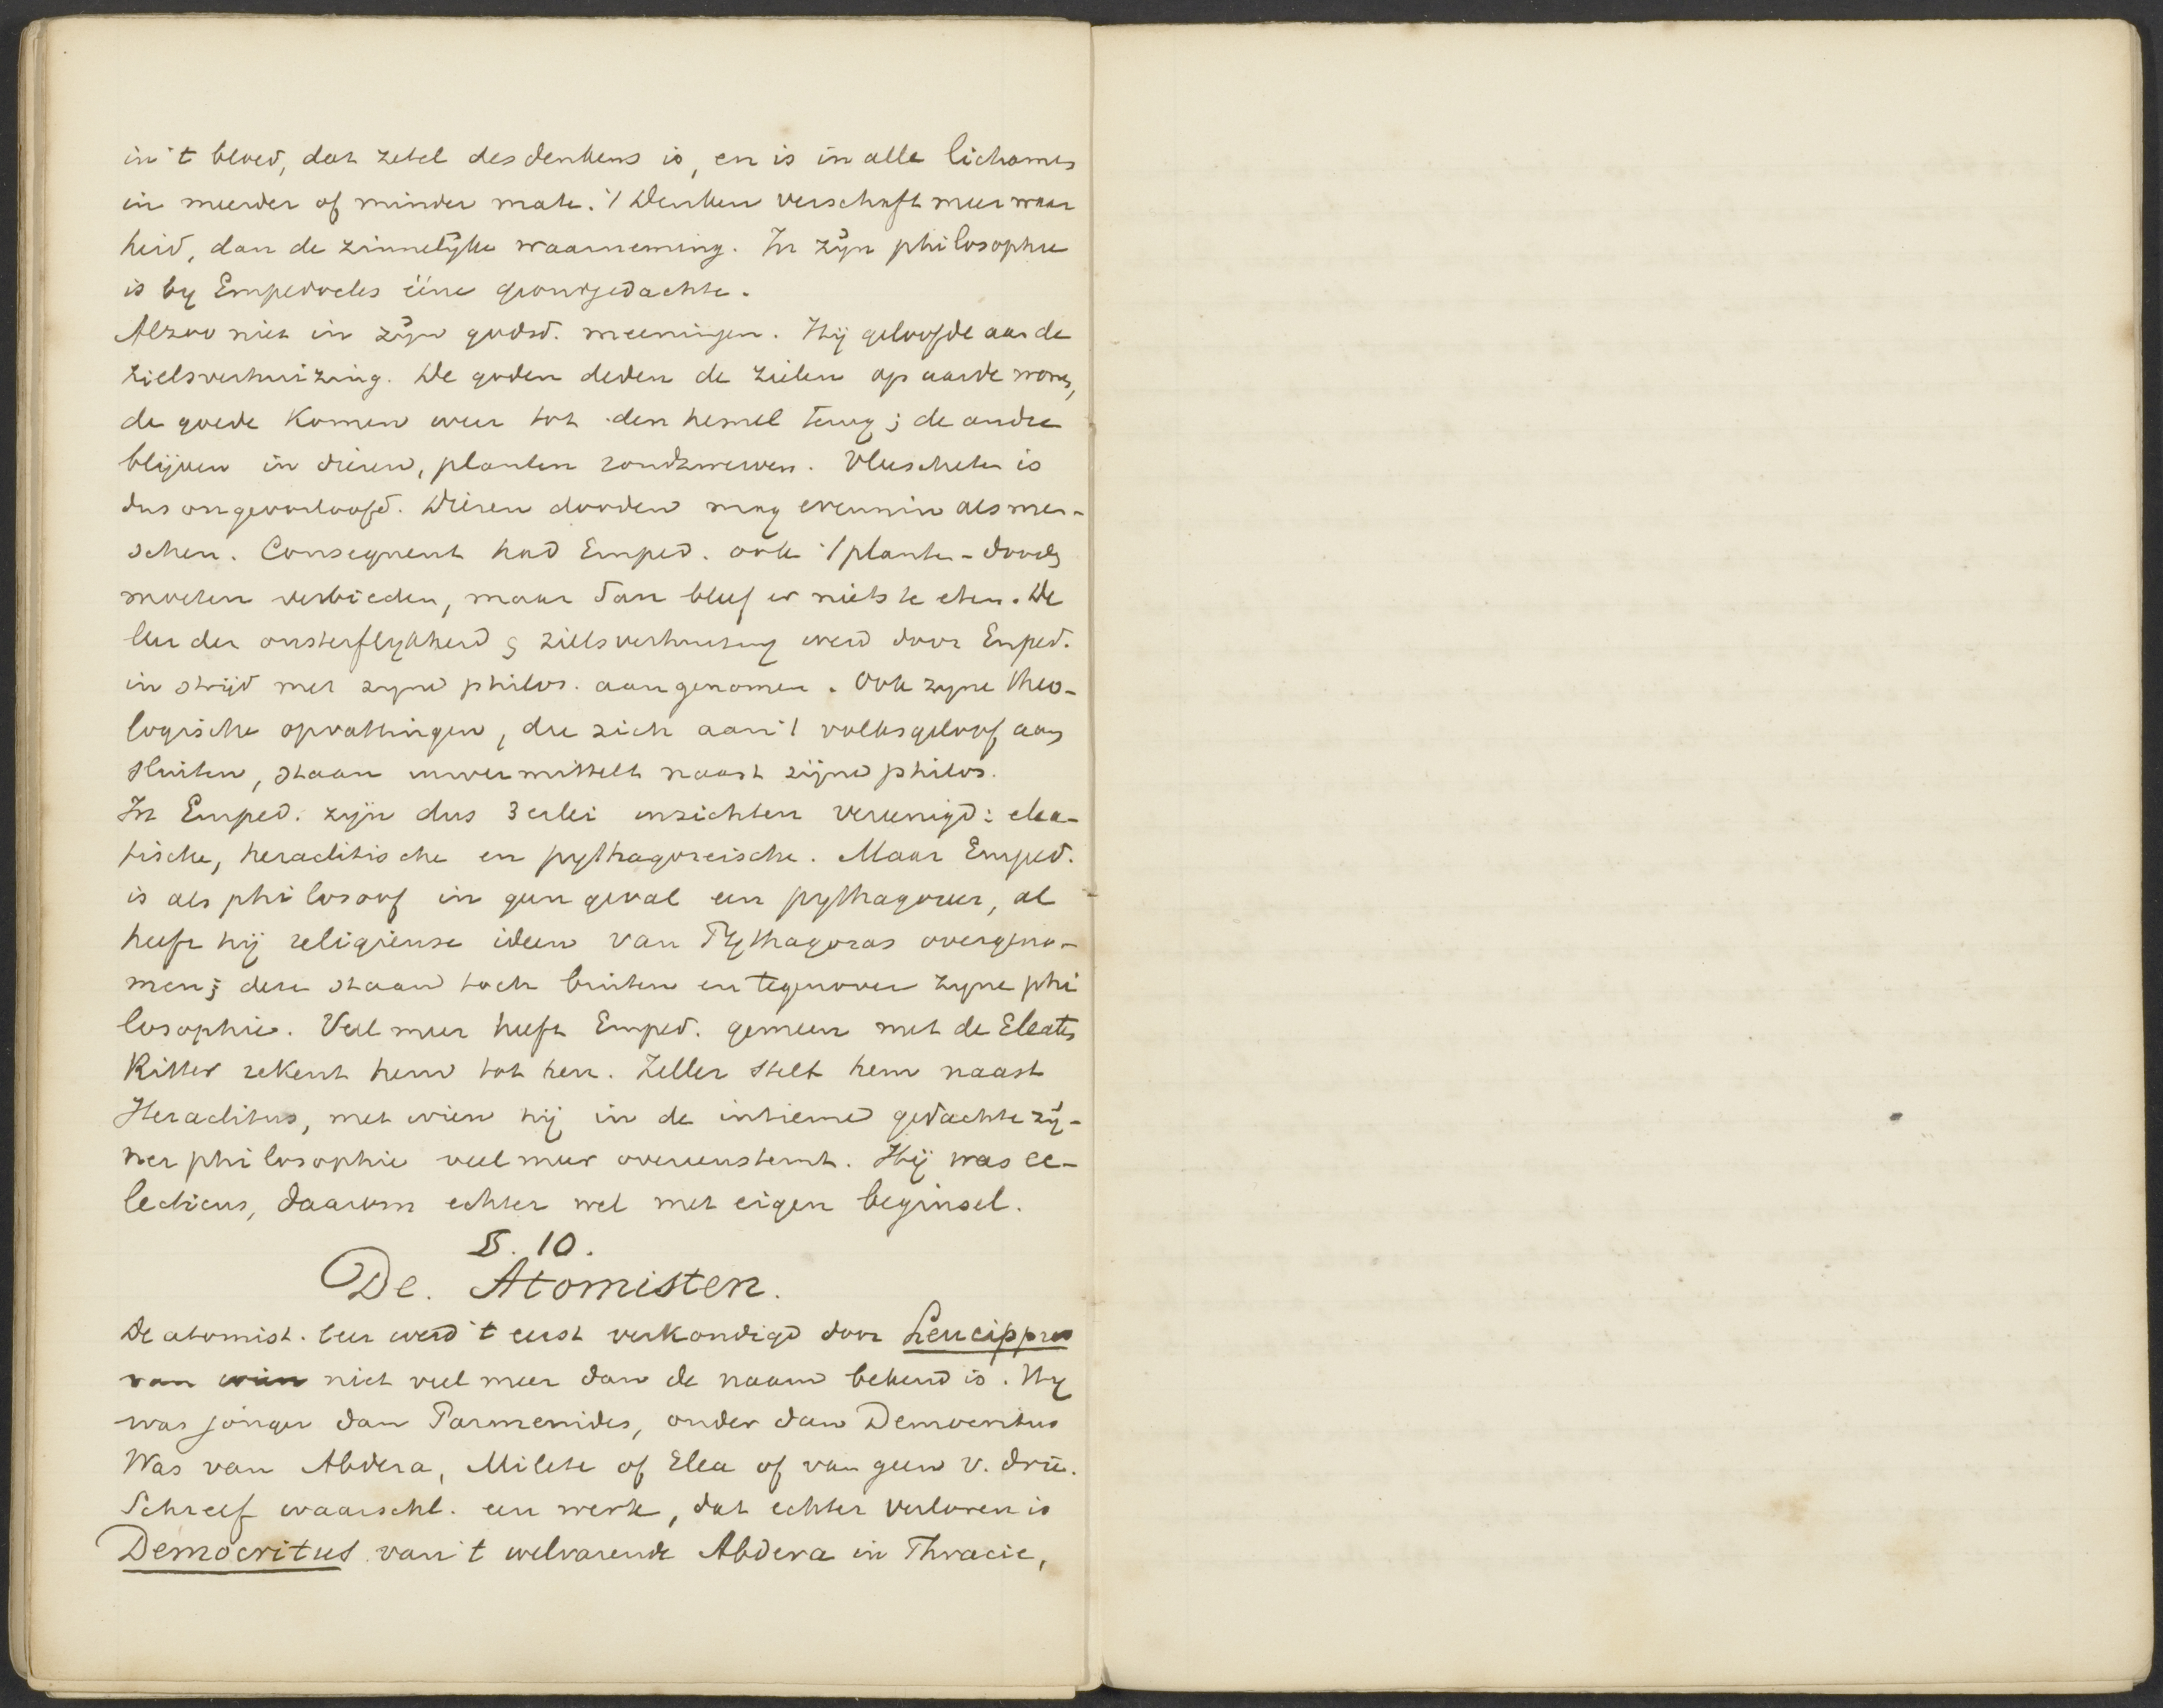 in 't bloed, dat zetel des denkens is, en is in alle lichamen
in meerder of minder mate. 't Denken verschaft meer waar
heid, dan de zinnelijke waarneming. In zijn philosophie
is by Empedocles ééne grondgedachte.
Alzoo niet in zijn godsd. meeningen. Hij geloofde aan de
zielsverhuizing. De goden deden de zielen op aarde wonen,
de goede komen weer tot den hemel terug; de andre
blijven in dieren, planten rondzwerven. Vleescheten is
dus ongeoorloofd. Dieren dooden mag evenmin als men-
schen. Consequent had Emped. ook 't planten-dooden
moeten verbieden, maar dan bleef er niets te eten. De
leer der onsterflykheid & zielsverhuizing werd door Emped.
in strijd met zyne philos. aangenomen. Ook zyne theo-
logische opvattingen, die zich aan 't volksgeloof aan
sluiten, staan onvermittelt naast zijne philos.
In Emped. zijn dus 3 erlei inzichten vereenigd: elea-
tische, heraclitische en pythagoreische. Maar Emped.
is als philosoof in geen geval een pythagoreer, al
heeft hij religieuse ideen van Pythagoras overgeno-
men; deze staan toch buiten en tegenover zyne phi
losophie. Veel meer heeft Emped. gemeen met de Eleaten
Ritter rekent hem tot hen. Zeller stelt hem naast
Heraclitus, met wien hij in de intieme gedachte zij-
ner philosophie veel meer overeenstemt. Hij was ec-
lecticus, daarom echter wel met eigen beginsel.
§. 10.
De. Atomisten.
De atomist. leer werd 't eerst verkondigd door Leucippus
van wien niet veel meer dan de naam bekend is. Hy
was jonger dan Parmenides, ouder dan Democritus
Was van Abdera, Milete of Elea of van geen v. drie.
Schreef waarschl. een werk, dat echter verloren is
Democritus van 't welvarende Abdera in Thracie,